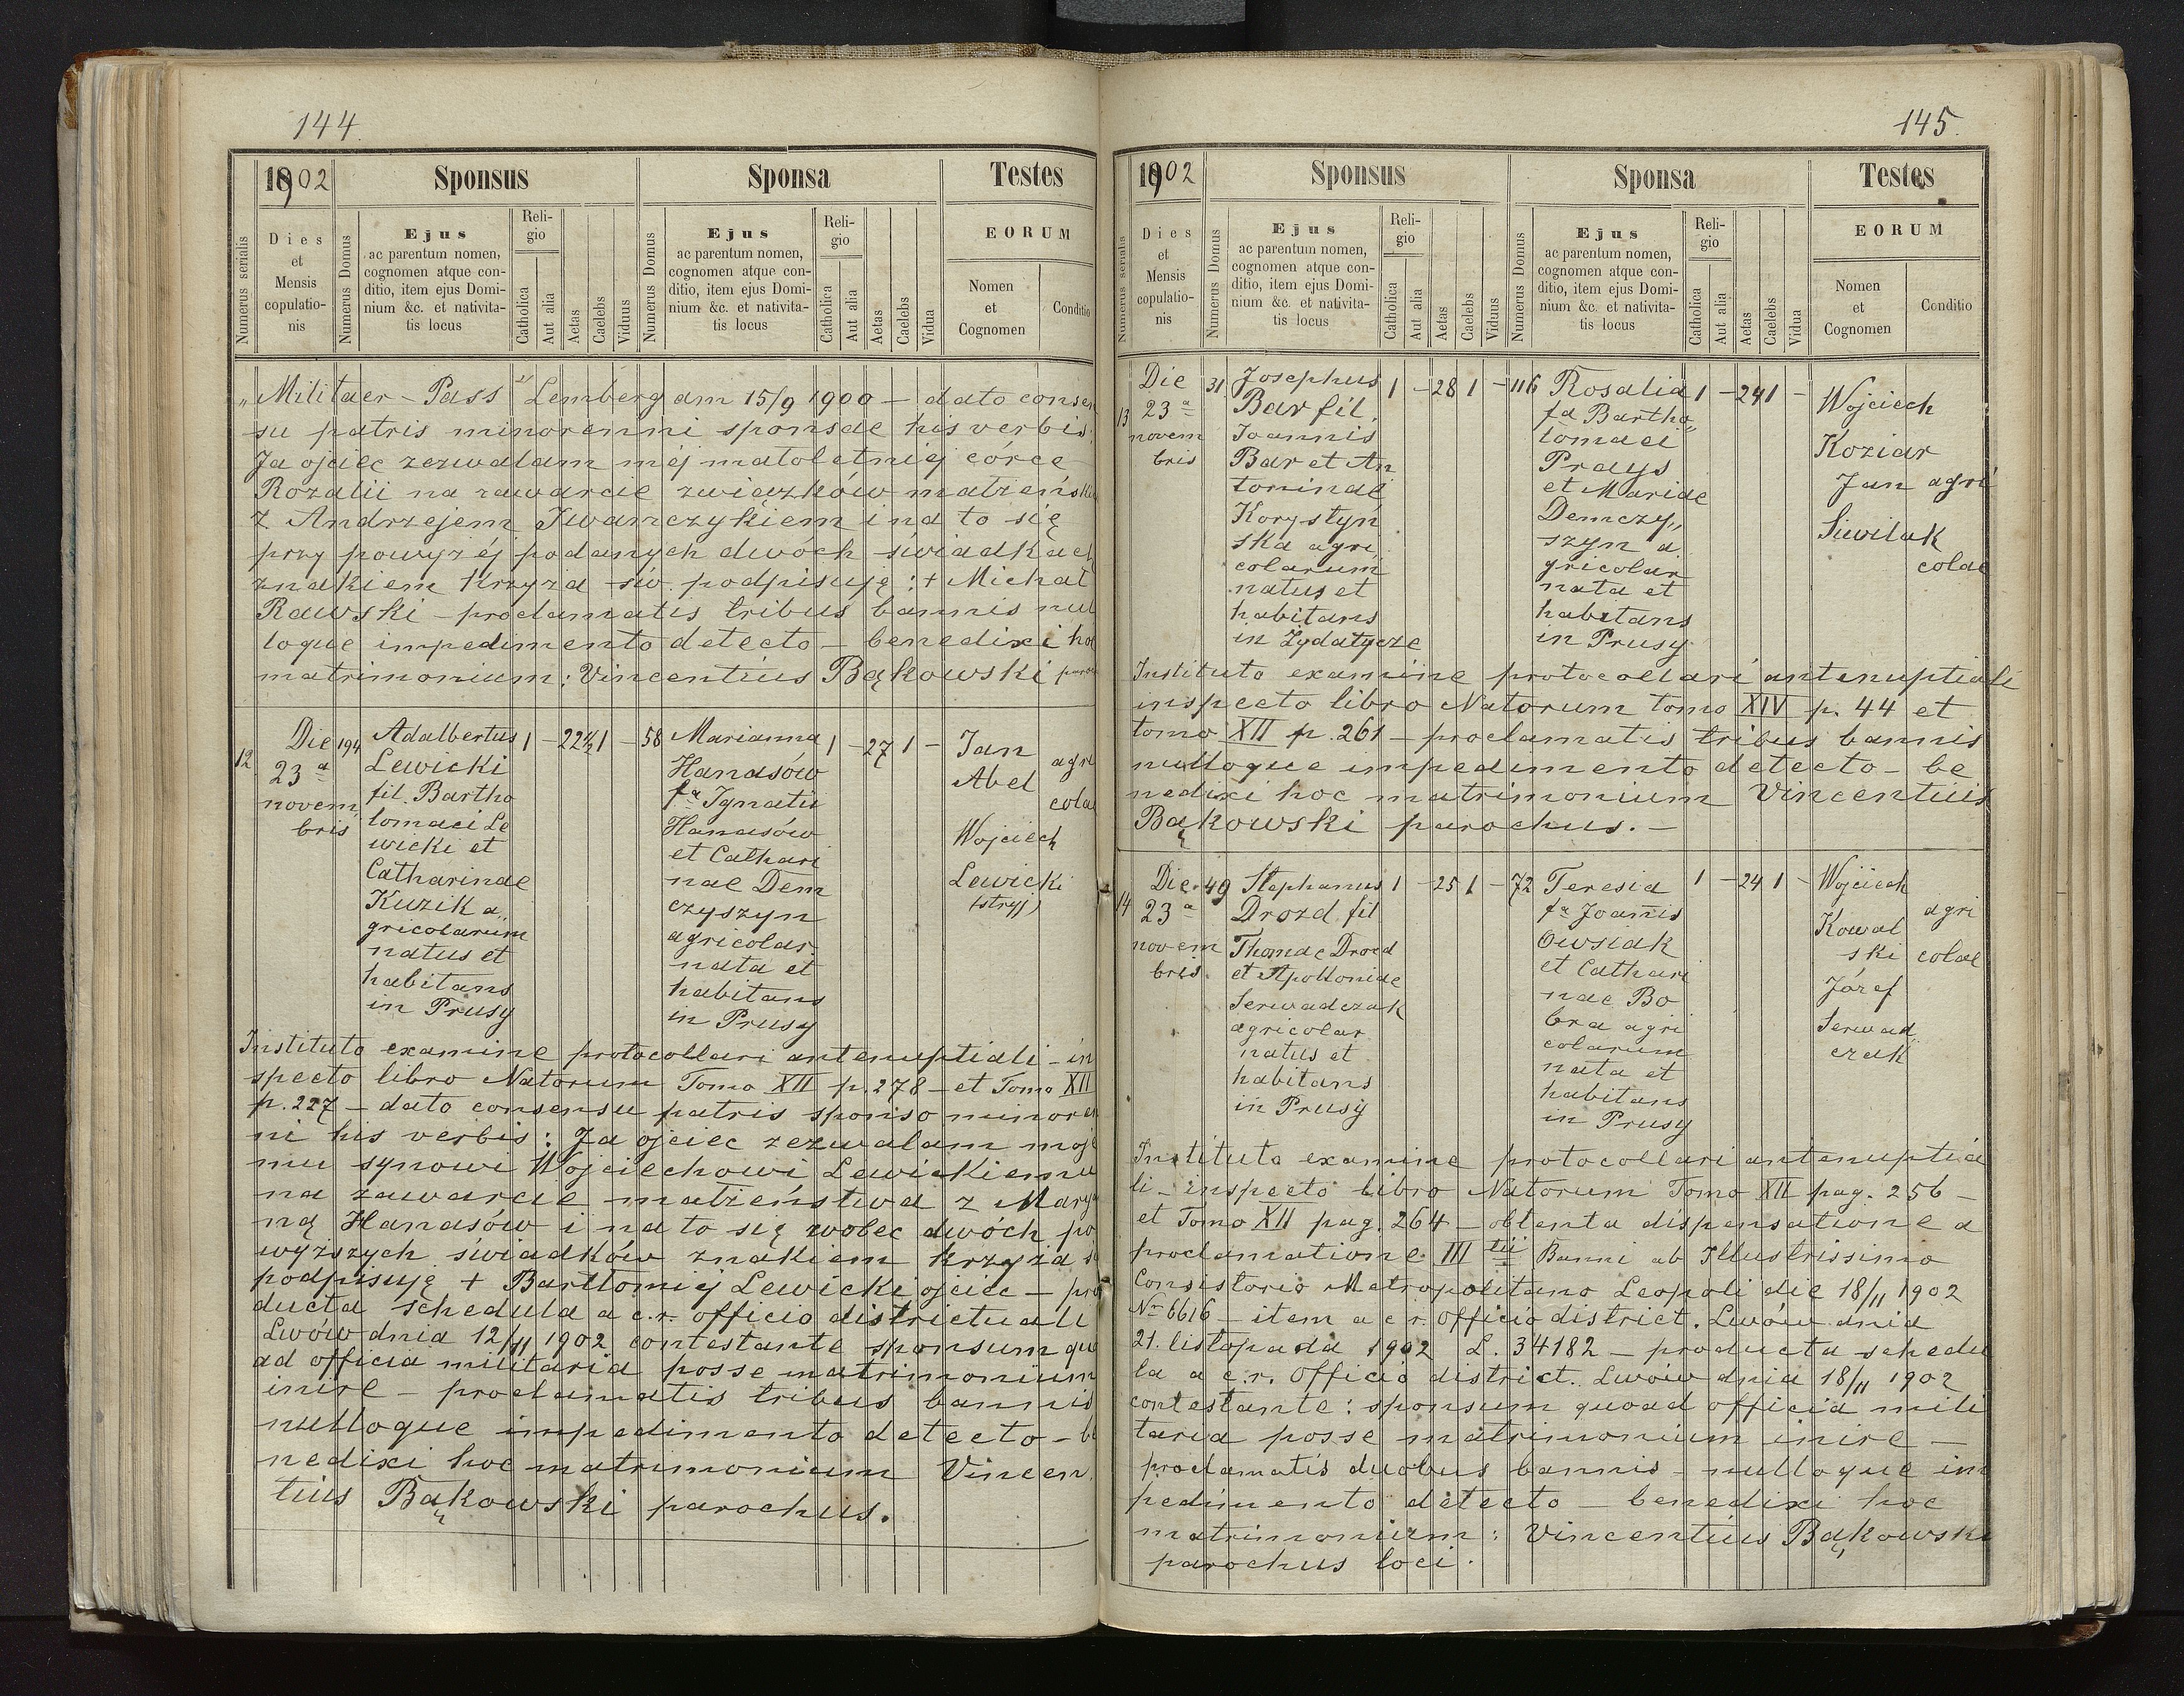 144.
1902
Sponsus
Sponsa
Testes
Numerus serialis
Dies
et
Mensis
copulatio-
nis
Numerus Domus
Ejus
ac parentum nomen,
cognomen atque con-
ditio, item ejus Domi-
nium &c. et nativita-
tis locus
Reli-
gio
Catholica
Aut alia
Aetas
Caelebs
Viduus
Numerus Domus
Ejus
ac parentum nomen,
cognomen atque con-
ditio, item ejus Domi-
nium &c. et nativita-
tis locus
Reli-
gio
Catholica
Aut alia
Aetas
Caelebs
Vidua
EORUM
Nomen
et
Cognomen
Conditio
„Militaer-Pass" Lemberg am 15/9 1900 – dato consen
su patris minorenni sponsae his verbis:
Ja ojciec zezwalam méj małoletniéj córce
Rozalii na zawarcie związków małżeńskich
z Andrzejem Iwanczykiem i na to się
przy powyżéj podanych dwóch świadkach
znakiem krzyża św. podpisuję: + Michał
Rawski – proclamatis tribus bannis nul
loque impedimento detecto – benedixi hoc
matrimonium: Vincentius Bąkowski
12
Die
23 a
novem
bris
194
Adalbertus
Lewicki
fil. Bartho
lomaei Le
wicki et
Catharinae
Kuzik a„
gricolarum
natus et
habitans
in Prusy
1 – 22½ 1 –
58
Marianna
Hanasów
fa Ignatii
Hanasów
et Cathari
nae Dem
czyszyn
agricolar.
nata et
habitans
in Prusy
1 – 27 1 –
Jan
Abel
Wojciech
Lewicki
(stryj)
agri
colae
Instituto examine protocollari antenuptiali – in
specto libro Natorum Tomo XII p. 278 – et Tomo XII
p. 227 – dato consensu patris sponso minoren
ni his verbis: Ja ojciec zezwalam moje
mu synowi Wojciechowi Lewickiemu
na zawarcie małżeństwa z Marya
ną Hanasów i na to się wobec dwóch po
wyższych świadków znakiem krzyża
podpisuję + Bartłomiej Lewicki ojciec – pro
ducta schedula a c.r. officio districtuali
Lwów dnia 12/11 1902 contestante sponsum quo
ad officia militaria posse matrimonium
inire – proclamatis tribus bannis
nulloque impedimento detecto – be
nedixi hoc matrimonium Vincen
tius Bąkowski parochus.
145.
1902
Sponsus
Sponsa
Testes
Numerus serialis
Dies
et
Mensis
copulatio-
nis
Numerus Domus
Ejus
ac parentum nomen,
cognomen atque con-
ditio, item ejus Domi-
nium &c. et nativita-
tis locus
Reli-
gio
Catholica
Aut alia
Aetas
Caelebs
Viduus
Numerus Domus
Ejus
ac parentum nomen,
cognomen atque con-
ditio, item ejus Domi-
nium &c. et nativita-
tis locus
Reli-
gio
Catholica
Aut alia
Aetas
Caelebs
Vidua
EORUM
Nomen
et
Cognomen
Conditio
13
Die
23 a
novem
bris
31
Josephus
Bar fil.
Joannis
Bar et An
toninae
Korystyń
ska agri
colarum
natus et
habitans
in Żydatycze
1 – 28 1 –
116
Rosalia
fa Bartho„
lomaei
Prays
et Mariae
Demczy„
szyn a
gricolar
nata et
habitans
in Prusy
1 – 24 1 –
Wojciech
Koziar
Jan
Siwilak
agri
colae
Instituto examine protocollari antenuptiali
inspecto libro Natorum tomo XIV p. 44 et
tomo XII p. 261 – proclamatis tribus bannis
nulloque impedimento detecto – be
nedixi hoc matrimonium Vincentius
Bąkowski parochus. –
14
Die
23 a
novem
bris
49
Stephanus
Drozd fil
Thomae Drozd
et Apolloniae
Serwadczak
agricolar
natus et
habitans
in Prusy
1 – 25 1 –
72
Teresia
fa Joannis
Owsiak
et Cathari
nae Bo
bra agri
colarum
nata et
habitans
in Prusy
1 – 24 1 –
Wojciech
Kowal
ski
Józef
Serwad
czak
agri
colae
Instituto examine protocollari antenuptia
li – inspecto libro Natorum Tomo XII pag. 256 –
et Tomo XII pag. 264 – obtenta dispensatione a
proclamatione III tii Banni ab Illustrissimo
Consistorio Metropolitano Leopoli die 18/11 1902
Nr 6616 – item a c r. Officio district. Lwów dnia
21. listopada 1902 L. 34182 – producta schedu
la a c.r. Officio district. Lwów dnia 18/11 1902
contestante: sponsum quoad officia mili
taria posse matrimonium inire –
proclamatis duobus bannis – nulloque im
pedimento detecto – benedixi hoc
matrimonium: Vincentius Bąkowski
parochus loci.